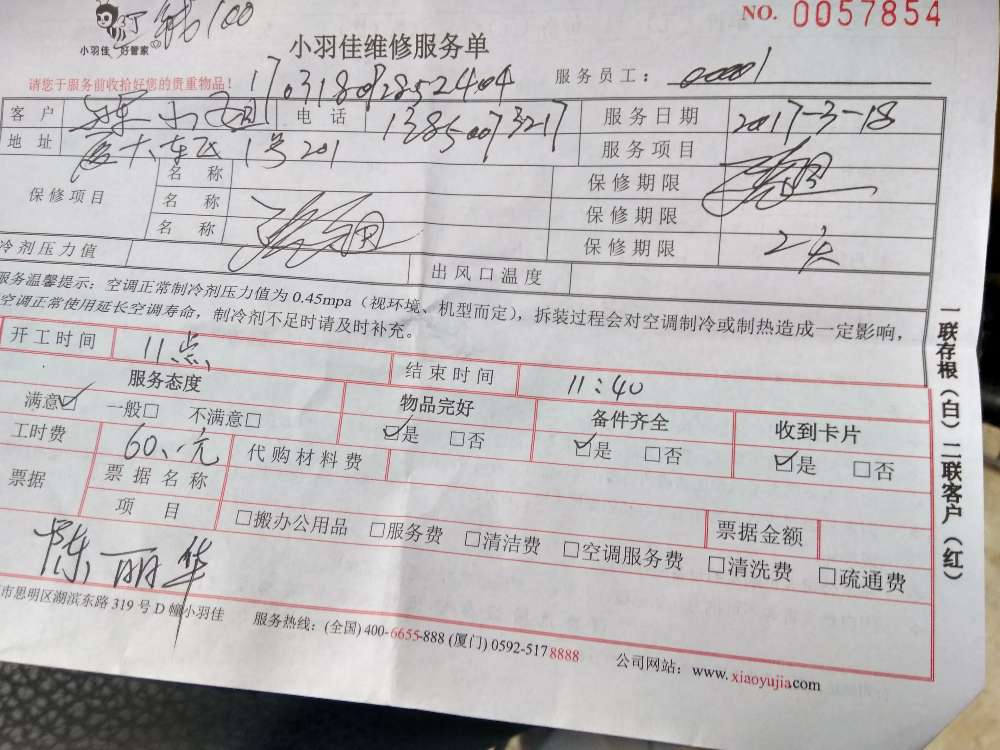 100 NO. 0057854
小羽佳 好管家 小羽佳维修服务单
请您于服务前收拾好您的贵重物品！ 服务员工： 00001
170318092852404
客户 小姐 电话 13850073217 服务日期 2017-3-18
地址 厦大东区1号201 服务项目
保修项目 名称 保修期限
名称 保修期限
名称 保修期限 2天
冷剂压力值 出风口温度
服务温馨提示：空调正常制冷剂压力值为0.45mpa（视环境、机型而定），拆装过程会对空调制冷或制热造成一定影响，
空调正常使用延长空调寿命，制冷剂不足时请及时补充。
开工时间 11点 结束时间 11:40
服务态度 物品完好 备件齐全 收到卡片
满意☑ 一般□ 不满意□ ☑是 □否 ☑是 □否 ☑是 □否
工时费 60.元 代购材料费
票据 票据名称
项目 □搬办公用品 □服务费 □清洁费 □空调服务费 □清洗费 □疏通费 票据金额
陈丽华
市思明区湖滨东路319号D幢小羽佳 服务热线：(全国) 400-6655-888 (厦门) 0592-5178888 公司网站：www.xiaoyujia.com
一联存根（白）二联客户（红）